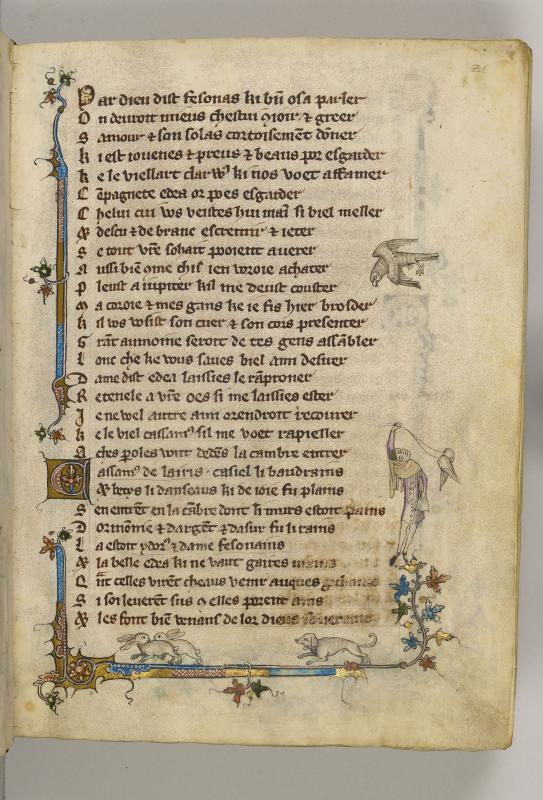 Par dieu dist fesonas ki bn̄ osa parler
On deuroit mieus chestui
Samour ⁊ son solas cortoisemēt dōner
Ki est iouenes ⁊ preus ⁊ beaus por esgarder
Ke le viellart ki nos voet affamer
Cōpagnete edea or poes esgarder
Chelui cui ws veistes hui mai si biel meller
descu ⁊ de branc escremir ⁊ ieter
Se tout vr̄e sohait pooient auerer
Aussi biē chis ien voroie achater
Pleust a iupiter kil me deust couster
Ma coroie ⁊ mes gans ke ie fis hier brosder
Kil ws wsist son cuer ⁊ son cors presenter
Grāt aumosne seroit de tes gens assābler
Lonc che ke vous saues biel ami desirer
Dame dist edea laissies le rāproner
Retenele a vr̄e oes si me laissies ester
Ie ne wel autre ami orendroit recourer
Ke le viel cassamꝰ sil me voet rapieller
A ches paroles wnt dedēs la cambre entrer
Cassamꝰ de lairis · casiel li baudrains
betys li danseaus ki de ioie fu plains
Sen entrēt en la cābre dont li murs estoit pains
Dor ⁊ dargēt ⁊ dasur fu li rains
La estoit ydorꝰ ⁊ dame fesonains
la belle edea ki ne vaut gaires mains
Qn̄t celles virēt cheaus venir auques
Si soi leuerēt sus elles porent ains
les font biē venans de lor dieus